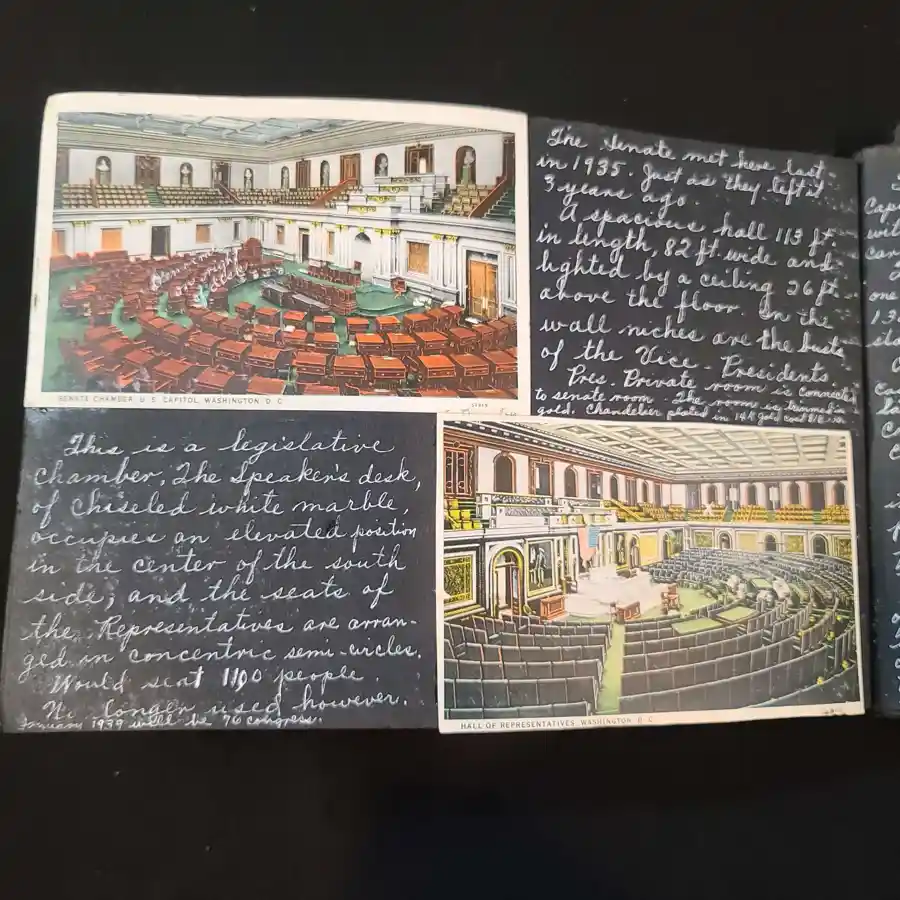 The Senate met here last
in 1935. Just as they left it
3 years ago.
A spacious hall 113 ft.
in length, 82 ft. wide and
lighted by a ceiling 26 ft.
above the floor. In the
wall niches are the busts
of the Vice-Presidents.
Pres. Private room is connected
to senate room. The room is trimmed in
gold. Chandelier plated in 14 K gold cost
SENATE CHAMBER, U. S. CAPITOL, WASHINGTON, D. C.
This is a legislative
chamber. The Speaker's desk,
of chiseled white marble,
occupies an elevated position
in the center of the south
side; and the seats of
the Representatives are arran-
ged in concentric semi-circles.
Would seat 1100 people.
No longer used however.
January 1939 will be 76 congress.
HALL OF REPRESENTATIVES, WASHINGTON, D. C.